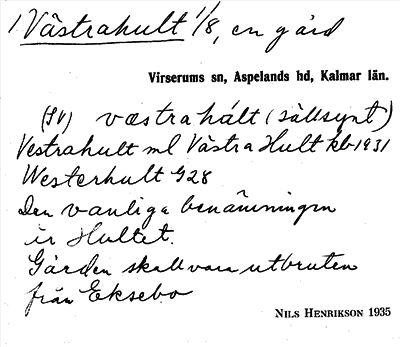 1 Västrahult 1/8, en gård
Virserums sn, Aspelands hd, Kalmar län.
(Sv) væstrahált (sällsynt)
Vestrahult ml Västra Hult kb 1931
Westerhult G28
Den vanliga benämningen
är Hultet.
Gården skall vara utbruten
från Eksebo
NILS HENRIKSON 1935